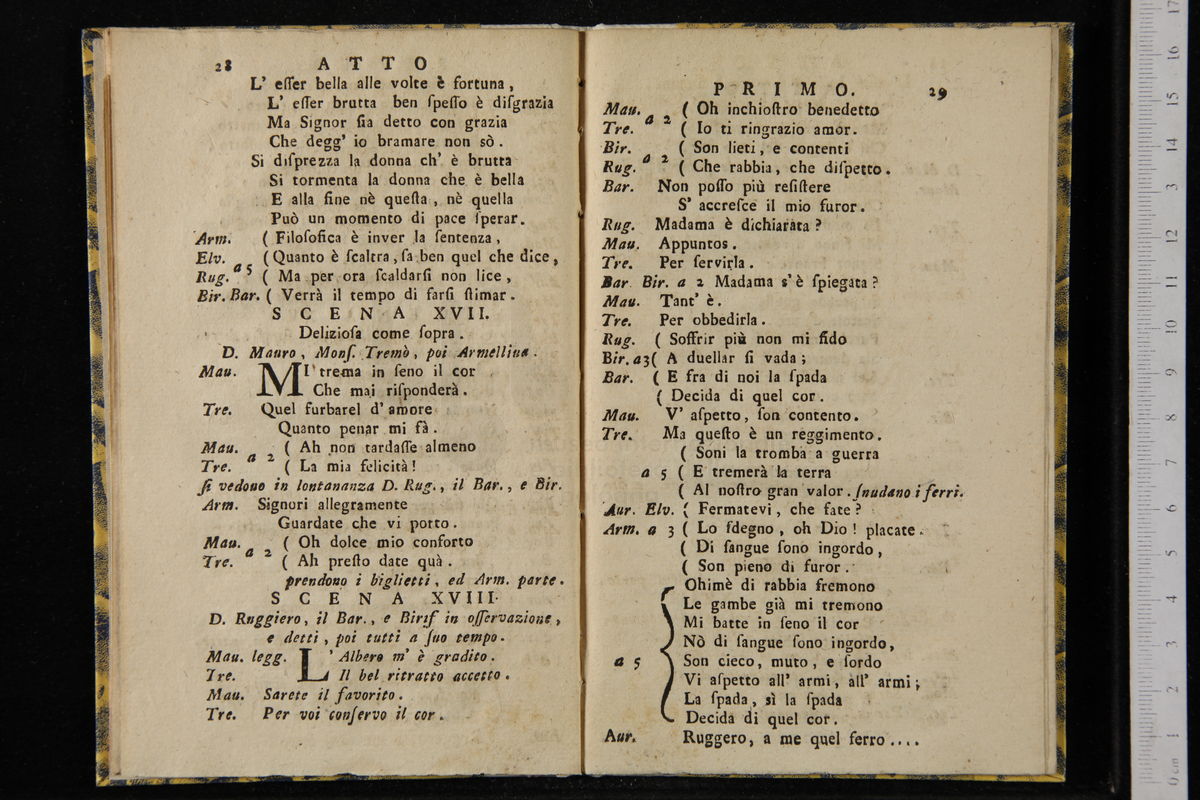 28 A T T O
L' eſſer bella alle volte è fortuna,
L' eſſer brutta ben ſpeſſo è diſgrazia
Ma Signor ſia detto con grazia
Che degg' io bramare non sò.
Si diſprezza la donna ch' è brutta
Si tormenta la donna che è bella
E alla fine nè queſta, nè quella
Può un momento di pace ſperar.
Arm. ( Filoſofica è inver la ſentenza,
Elv. ( Quanto è ſcaltra, ſa ben quel che dice,
a 5
Rug. ( Ma per ora ſcaldarſi non lice,
Bir. Bar. ( Verrà il tempo di farſi ſtimar.
S C E N A XVII.
Delizioſa come ſopra.
D. Mauro, Monſ. Tremò, poi Armellina.
Mau. MI' trema in ſeno il cor
Che mai riſponderà.
Tre. Quel furbarel d' amore
Quanto penar mi fà.
Mau. ( Ah non tardaſſe almeno
a 2
Tre. ( La mia felicità!
ſi vedono in lontananza D. Rug., il Bar., e Bir.
Arm. Signori allegramente
Guardate che vi porto.
Mau. ( Oh dolce mio conforto
a 2
Tre. ( Ah preſto date quà.
prendono i biglietti, ed Arm. parte.
S C E N A XVIII.
D. Ruggiero, il Bar., e Birif in oſſervazione,
e detti, poi tutti a ſuo tempo.
Mau. legg. L' Albero m' è gradito.
Tre. Il bel ritratto accetto.
Mau. Sarete il favorito.
Tre. Per voi conſervo il cor.
P R I M O. 29
Mau. ( Oh inchioſtro benedetto
a 2
Tre. ( Io ti ringrazio amor.
Bir. ( Son lieti, e contenti
a 2
Rug. ( Che rabbia, che diſpetto.
Bar. Non poſſo più reſiſtere
S' accreſce il mio furor.
Rug. Madama è dichiarata?
Mau. Appuntos.
Tre. Per ſervirla.
Bar Bir. a 2 Madama s' è ſpiegata?
Mau. Tant' è.
Tre. Per obbedirla.
Rug. ( Soffrir più non mi fido
Bir. a3( A duellar ſi vada;
Bar. ( E fra di noi la ſpada
( Decida di quel cor.
Mau. V' aſpetto, ſon contento.
Tre. Ma queſto è un reggimento.
( Soni la tromba a guerra
a 5 ( E tremerà la terra
( Al noſtro gran valor. ſnudano i ferri.
Aur. Elv. ( Fermatevi, che fate?
Arm. a 3 ( Lo ſdegno, oh Dio! placate.
( Di ſangue ſono ingordo,
( Son pieno di furor.
Ohimè di rabbia fremono
Le gambe già mi tremono
Mi batte in ſeno il cor
Nò di ſangue ſono ingordo,
a 5 Son cieco, muto, e ſordo
Vi aſpetto all' armi, all' armi;
La ſpada, sì la ſpada
Decida di quel cor.
Aur. Ruggero, a me quel ferro....
0 cm 1 2 3 4 5 6 7 8 9 10 11 12 13 14 15 16 17